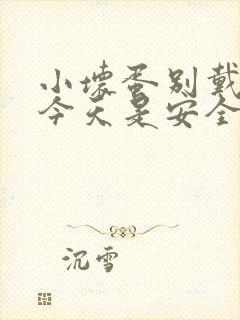 小坏蛋别戴
今天是安全
沉雪